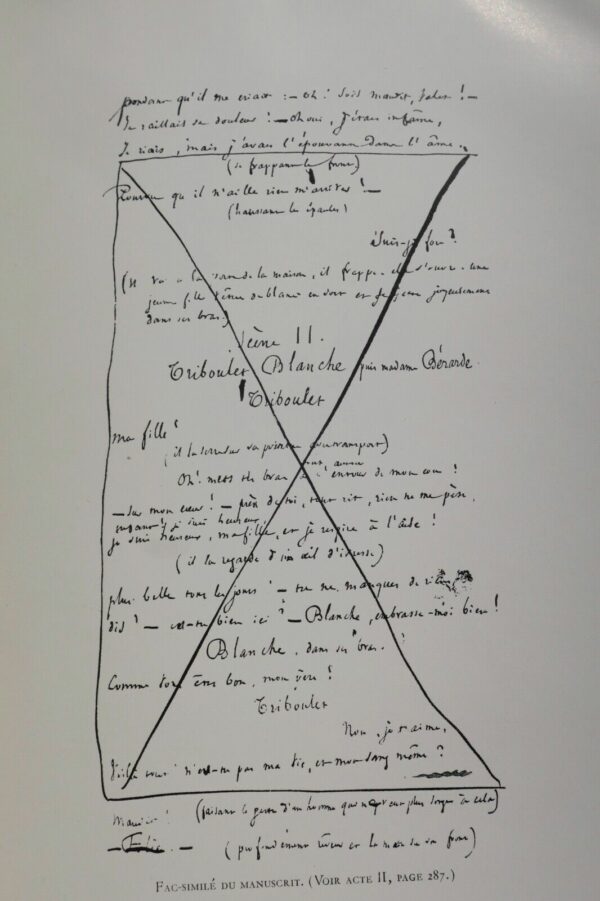 pendant qu'il me criait : — Oh ! Sois maudit, valet ! —
Je raillais sa douleur ! — Oh oui, j'étais infâme,
Je riais, mais j'avais l'épouvante dans l'âme.
(se frappant le front)
Pourvu qu'il n'aille rien m'arriver ! —
(haussant les épaules)
Suis-je fou ?
(il va à la porte de la maison, il frappe. elle s'ouvre. une
jeune fille vêtue de blanc en sort et se jette joyeusement
dans ses bras.)
Scène II.
Triboulet Blanche puis madame Bérarde.
Triboulet
ma fille !
(il la serre sur sa poitrine avec transport)
Oh ! mets tes bras à l'entour de mon cou !
— Sur mon cœur ! — près de toi, tout rit, rien ne me pèse,
enfant, je suis heureux,
je suis heureux, ma fille, et je respire à l'aise !
(il la regarde d'un œil d'ivresse)
plus belle tous les jours ! — tu ne manques de rien,
dis ? — es-tu bien ici ? — Blanche, embrasse-moi bien !
Blanche, dans ses bras.
Comme vous êtes bon, mon père !
Triboulet
Non, je t'aime,
Voilà tout ! n'es-tu pas ma vie, et mon sang même ?
(faisant le geste d'un homme qui ne veut plus songer à cela)
Maudit !
(profondément rêveur et la main sur son front)
FAC-SIMILÉ DU MANUSCRIT. (VOIR ACTE II, PAGE 287.)